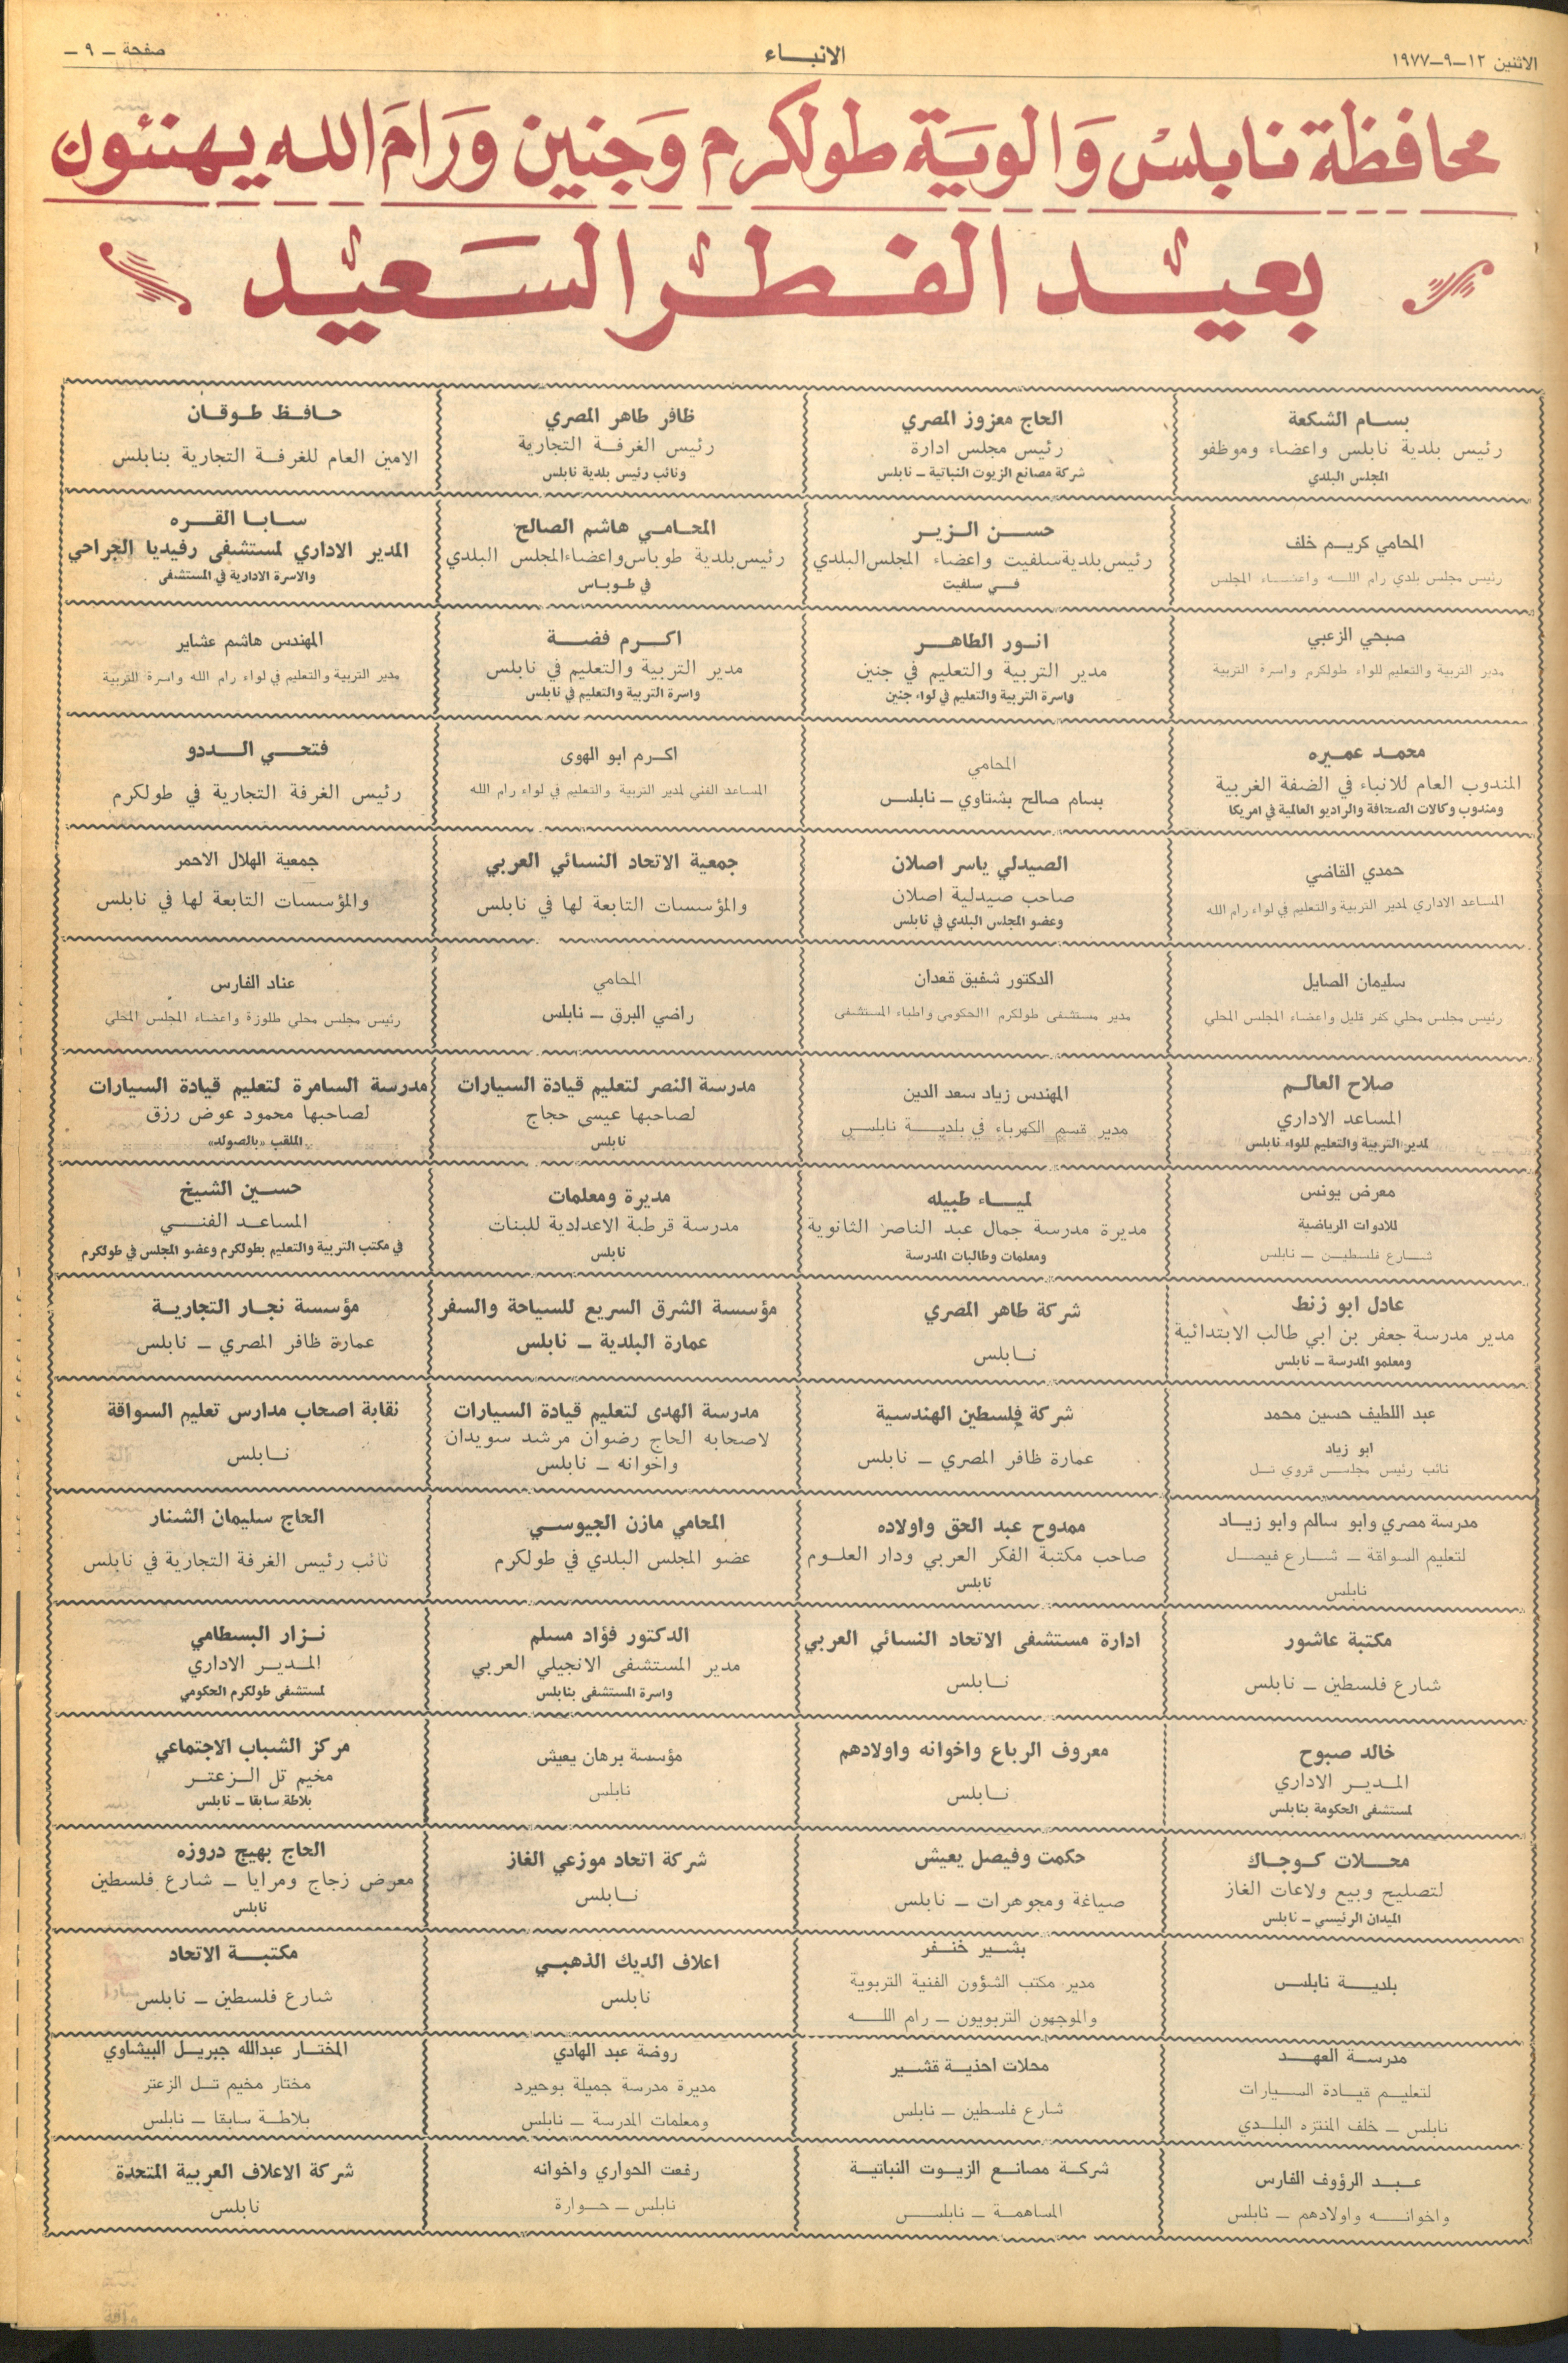 الاثنين ١٢-٩-١٩٧٧
الانبـــاء
صفحة - ٩ -
محافظة نابلس والوية طولكرم وجنين ورام الله يهنئون
بعيد الفطر السعيد
بسام الشكعة
رئيس بلدية نابلس واعضاء وموظفو
المجلس البلدي
الحاج معزوز المصري
رئيس مجلس ادارة
شركة مصانع الزيوت النباتية - نابلس
ظافر طاهر المصري
رئيس الغرفة التجارية
ونائب رئيس بلدية نابلس
حافظ طوقان
الامين العام للغرفة التجارية بنابلس
المحامي كريم خلف
رئيس مجلس بلدي رام الله واعضاء المجلس
حسن الزير
رئيس بلدية سلفيت واعضاء المجلس البلدي
في سلفيت
المحامي هاشم الصالح
رئيس بلدية طوباس واعضاء المجلس البلدي
في طوباس
سابا القره
المدير الاداري لمستشفى رفيديا الجراحي
والاسرة الادارية في المستشفى
صبحي الزعبي
مدير التربية والتعليم للواء طولكرم واسرة التربية
انور الطاهر
مدير التربية والتعليم في جنين
واسرة التربية والتعليم في لواء جنين
اكرم فضة
مدير التربية والتعليم في نابلس
واسرة التربية والتعليم في نابلس
المهندس هاشم عشاير
مدير التربية والتعليم في لواء رام الله واسرة التربية
محمد عميره
المندوب العام للانباء في الضفة الغربية
ومندوب وكالات الصحافة والراديو العالمية في امريكا
المحامي
بسام صالح بشتاوي - نابلس
اكرم ابو الهوى
المساعد الفني لمدير التربية والتعليم في لواء رام الله
فتحي الددو
رئيس الغرفة التجارية في طولكرم
حمدي القاضي
المساعد الاداري لمدير التربية والتعليم في لواء رام الله
الصيدلي ياسر اصلان
صاحب صيدلية اصلان
وعضو المجلس البلدي في نابلس
جمعية الاتحاد النسائي العربي
والمؤسسات التابعة لها في نابلس
جمعية الهلال الاحمر
والمؤسسات التابعة لها في نابلس
سليمان الصايل
رئيس مجلس محلي كفر قليل واعضاء المجلس المحلي
الدكتور شفيق قعدان
مدير مستشفى طولكرم االحكومي واطباء المستشفى
المحامي
راضي البرق - نابلس
عناد الفارس
رئيس مجلس محلي طلوزة واعضاء المجلس المحلي
صلاح العالم
المساعد الاداري
لمدير التربية والتعليم للواء نابلس
المهندس زياد سعد الدين
مدير قسم الكهرباء في بلدية نابلس
مدرسة النصر لتعليم قيادة السيارات
لصاحبها عيسى حجاج
نابلس
مدرسة السامرة لتعليم قيادة السيارات
لصاحبها محمود عوض رزق
الملقب «بالصولد»
معرض يونس
للادوات الرياضية
شارع فلسطين - نابلس
لمياء طبيله
مديرة مدرسة جمال عبد الناصر الثانوية
ومعلمات وطالبات المدرسة
مديرة ومعلمات
مدرسة قرطبة الاعدادية للبنات
نابلس
حسين الشيخ
المساعد الفني
في مكتب التربية والتعليم بطولكرم وعضو المجلس في طولكرم
عادل ابو زنط
مدير مدرسة جعفر بن ابي طالب الابتدائية
ومعلمو المدرسة - نابلس
شركة طاهر المصري
نابلس
مؤسسة الشرق السريع للسياحة والسفر
عمارة البلدية - نابلس
مؤسسة نجار التجارية
عمارة ظافر المصري - نابلس
عبد اللطيف حسين محمد
ابو زياد
نائب رئيس مجلس قروي تل
شركة فلسطين الهندسية
عمارة ظافر المصري - نابلس
مدرسة الهدى لتعليم قيادة السيارات
لاصحابه الحاج رضوان مرشد سويدان
واخوانه - نابلس
نقابة اصحاب مدارس تعليم السواقة
نابلس
مدرسة مصري وابو سالم وابو زياد
لتعليم السواقة - شارع فيصل
نابلس
ممدوح عبد الحق واولاده
صاحب مكتبة الفكر العربي ودار العلوم
نابلس
المحامي مازن الجيوسي
عضو المجلس البلدي في طولكرم
الحاج سليمان الشنار
نائب رئيس الغرفة التجارية في نابلس
مكتبة عاشور
شارع فلسطين - نابلس
ادارة مستشفى الاتحاد النسائي العربي
نابلس
الدكتور فؤاد مسلم
مدير المستشفى الانجيلي العربي
واسرة المستشفى بنابلس
نزار البسطامي
المدير الاداري
لمستشفى طولكرم الحكومي
خالد صبوح
المدير الاداري
لمستشفى الحكومة بنابلس
معروف الرباع واخوانه واولادهم
نابلس
مؤسسة برهان يعيش
نابلس
مركز الشباب الاجتماعي
مخيم تل الزعتر
بلاطة سابقا - نابلس
محلات كوجاك
لتصليح وبيع ولاعات الغاز
الميدان الرئيسي - نابلس
حكمت وفيصل يعيش
صياغة ومجوهرات - نابلس
شركة اتحاد موزعي الغاز
نابلس
الحاج بهيج دروزه
معرض زجاج ومرايا - شارع فلسطين
نابلس
بلدية نابلس
بشير خنفر
مدير مكتب الشؤون الفنية التربوية
والموجهون التربويون - رام الله
اعلاف الديك الذهبي
نابلس
مكتبة الاتحاد
شارع فلسطين - نابلس
مدرسة العهد
لتعليم قيادة السيارات
نابلس - خلف المنتزه البلدي
محلات احذية قشير
شارع فلسطين - نابلس
روضة عبد الهادي
مديرة مدرسة جميلة بوحيرد
ومعلمات المدرسة - نابلس
المختار عبدالله جبريل البيشاوي
مختار مخيم تل الزعتر
بلاطة سابقا - نابلس
عبد الرؤوف الفارس
واخوانه واولادهم - نابلس
شركة مصانع الزيوت النباتية
المساهمة - نابلس
رفعت الحواري واخوانه
نابلس - حوارة
شركة الاعلاف العربية المتحدة
نابلس